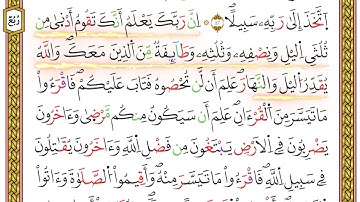 اَتَّخَذَ إِلَىٰ رَبِّهِۦ سَبِيلًا ۝ إِنَّ رَبَّكَ يَعْلَمُ أَنَّكَ تَقُومُ أَدْنَىٰ مِن
ثُلُثَيِ اِ۬ليْلِ وَنِصْفِهِۦ وَثُلُثِهِۦ وَطَآئِفَةٞ مِّنَ اَ۬لذِينَ مَعَكَۖ وَاللَّهُ
يُقَدِّرُ اُ۬ليْلَ وَالنَّهَارَۖ عَلِمَ أَن لَّن تُحْصُوهُ فَتَابَ عَلَيْكُمْۖ فَاقْرَءُواْ
مَا تَيَسَّرَ مِنَ اَ۬لْقُرْءَانِۖ عَلِمَ أَن سَيَكُونُ مِنكُم مَّرْضَىٰ وَءَاخَرُونَ
يَضْرِبُونَ فِے اِ۬لْأَرْضِ يَبْتَغُونَ مِن فَضْلِ اِ۬للَّهِ وَءَاخَرُونَ يُقَٰتِلُونَ
فِے سَبِيلِ اِ۬للَّهِۖ فَاقْرَءُواْ مَا تَيَسَّرَ مِنْهُۖ وَأَقِيمُواْ اُ۬لصَّلَوٰةَ وَءَاتُواْ
رُبُع